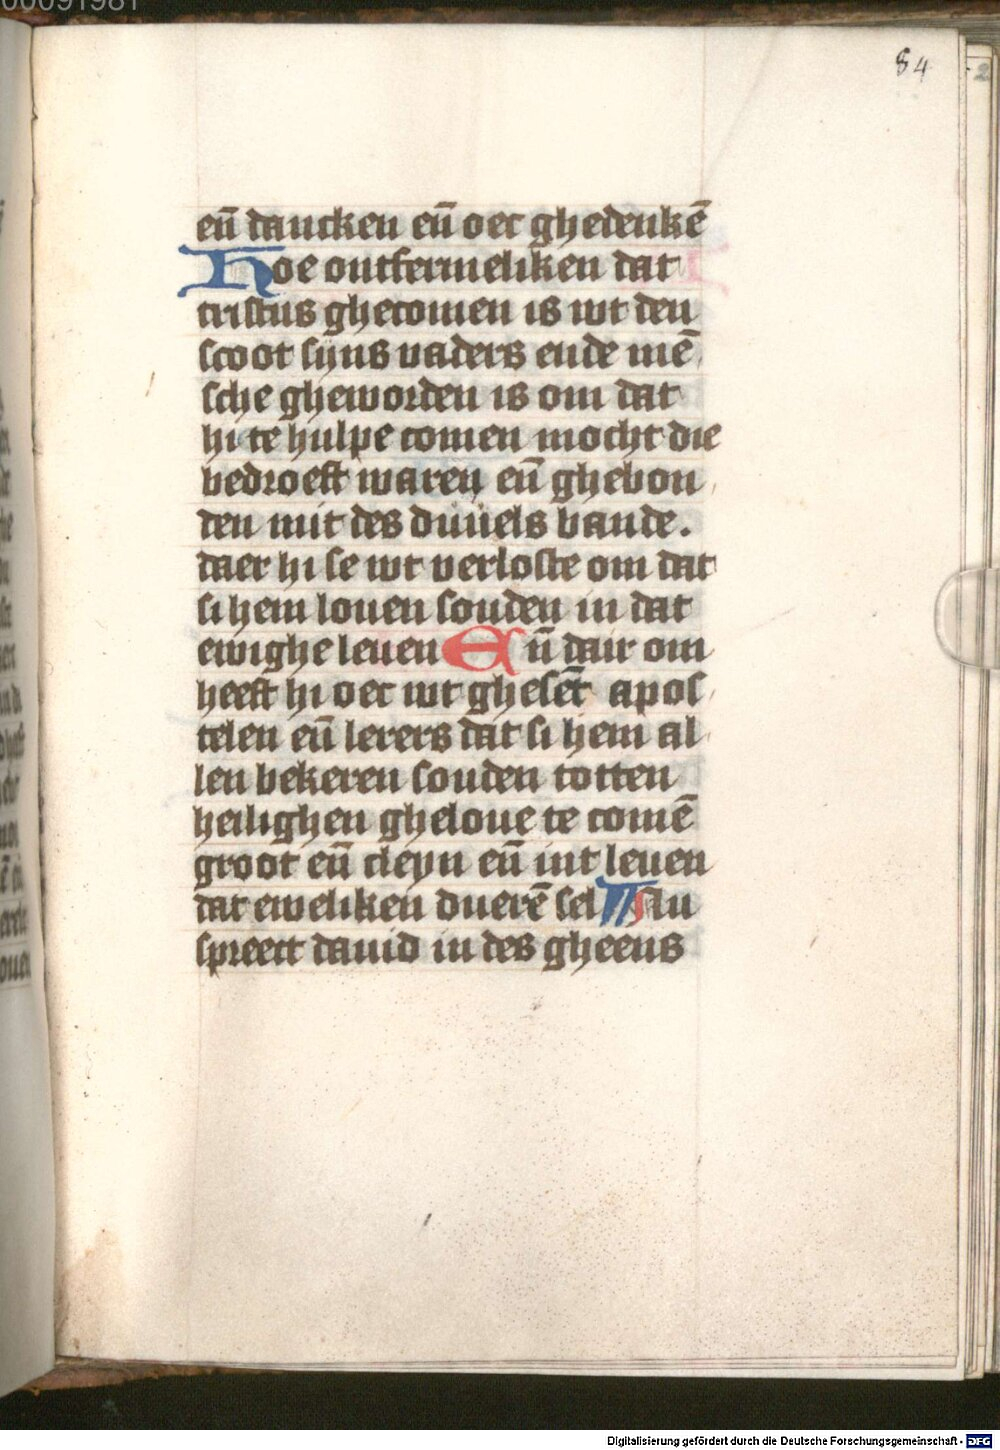 00091981
84
en̄ dancken en̄ oec ghedenkē
Hoe ontfermeliken dat
cristus ghecomen is wt den
scoot sijns vaders ende mē
sche gheworden is om dat
hi te hulpe comen mocht die
bedroeft waren en̄ ghebon
den mit des duuels bande.
daer hi se wt verloste om dat
si hem louen souden in dat
ewighe leuen En̄ dair om
heeft hi oec wt ghesēt apos
telen en̄ lerers dat si hem al
len bekeren souden totten
heilighen gheloue te comē
groot en̄ cleyn en̄ int leuen
dat eweliken duerē sel Als
spreect dauid in des gheens
Digitalisierung gefördert durch die Deutsche Forschungsgemeinschaft - DFG